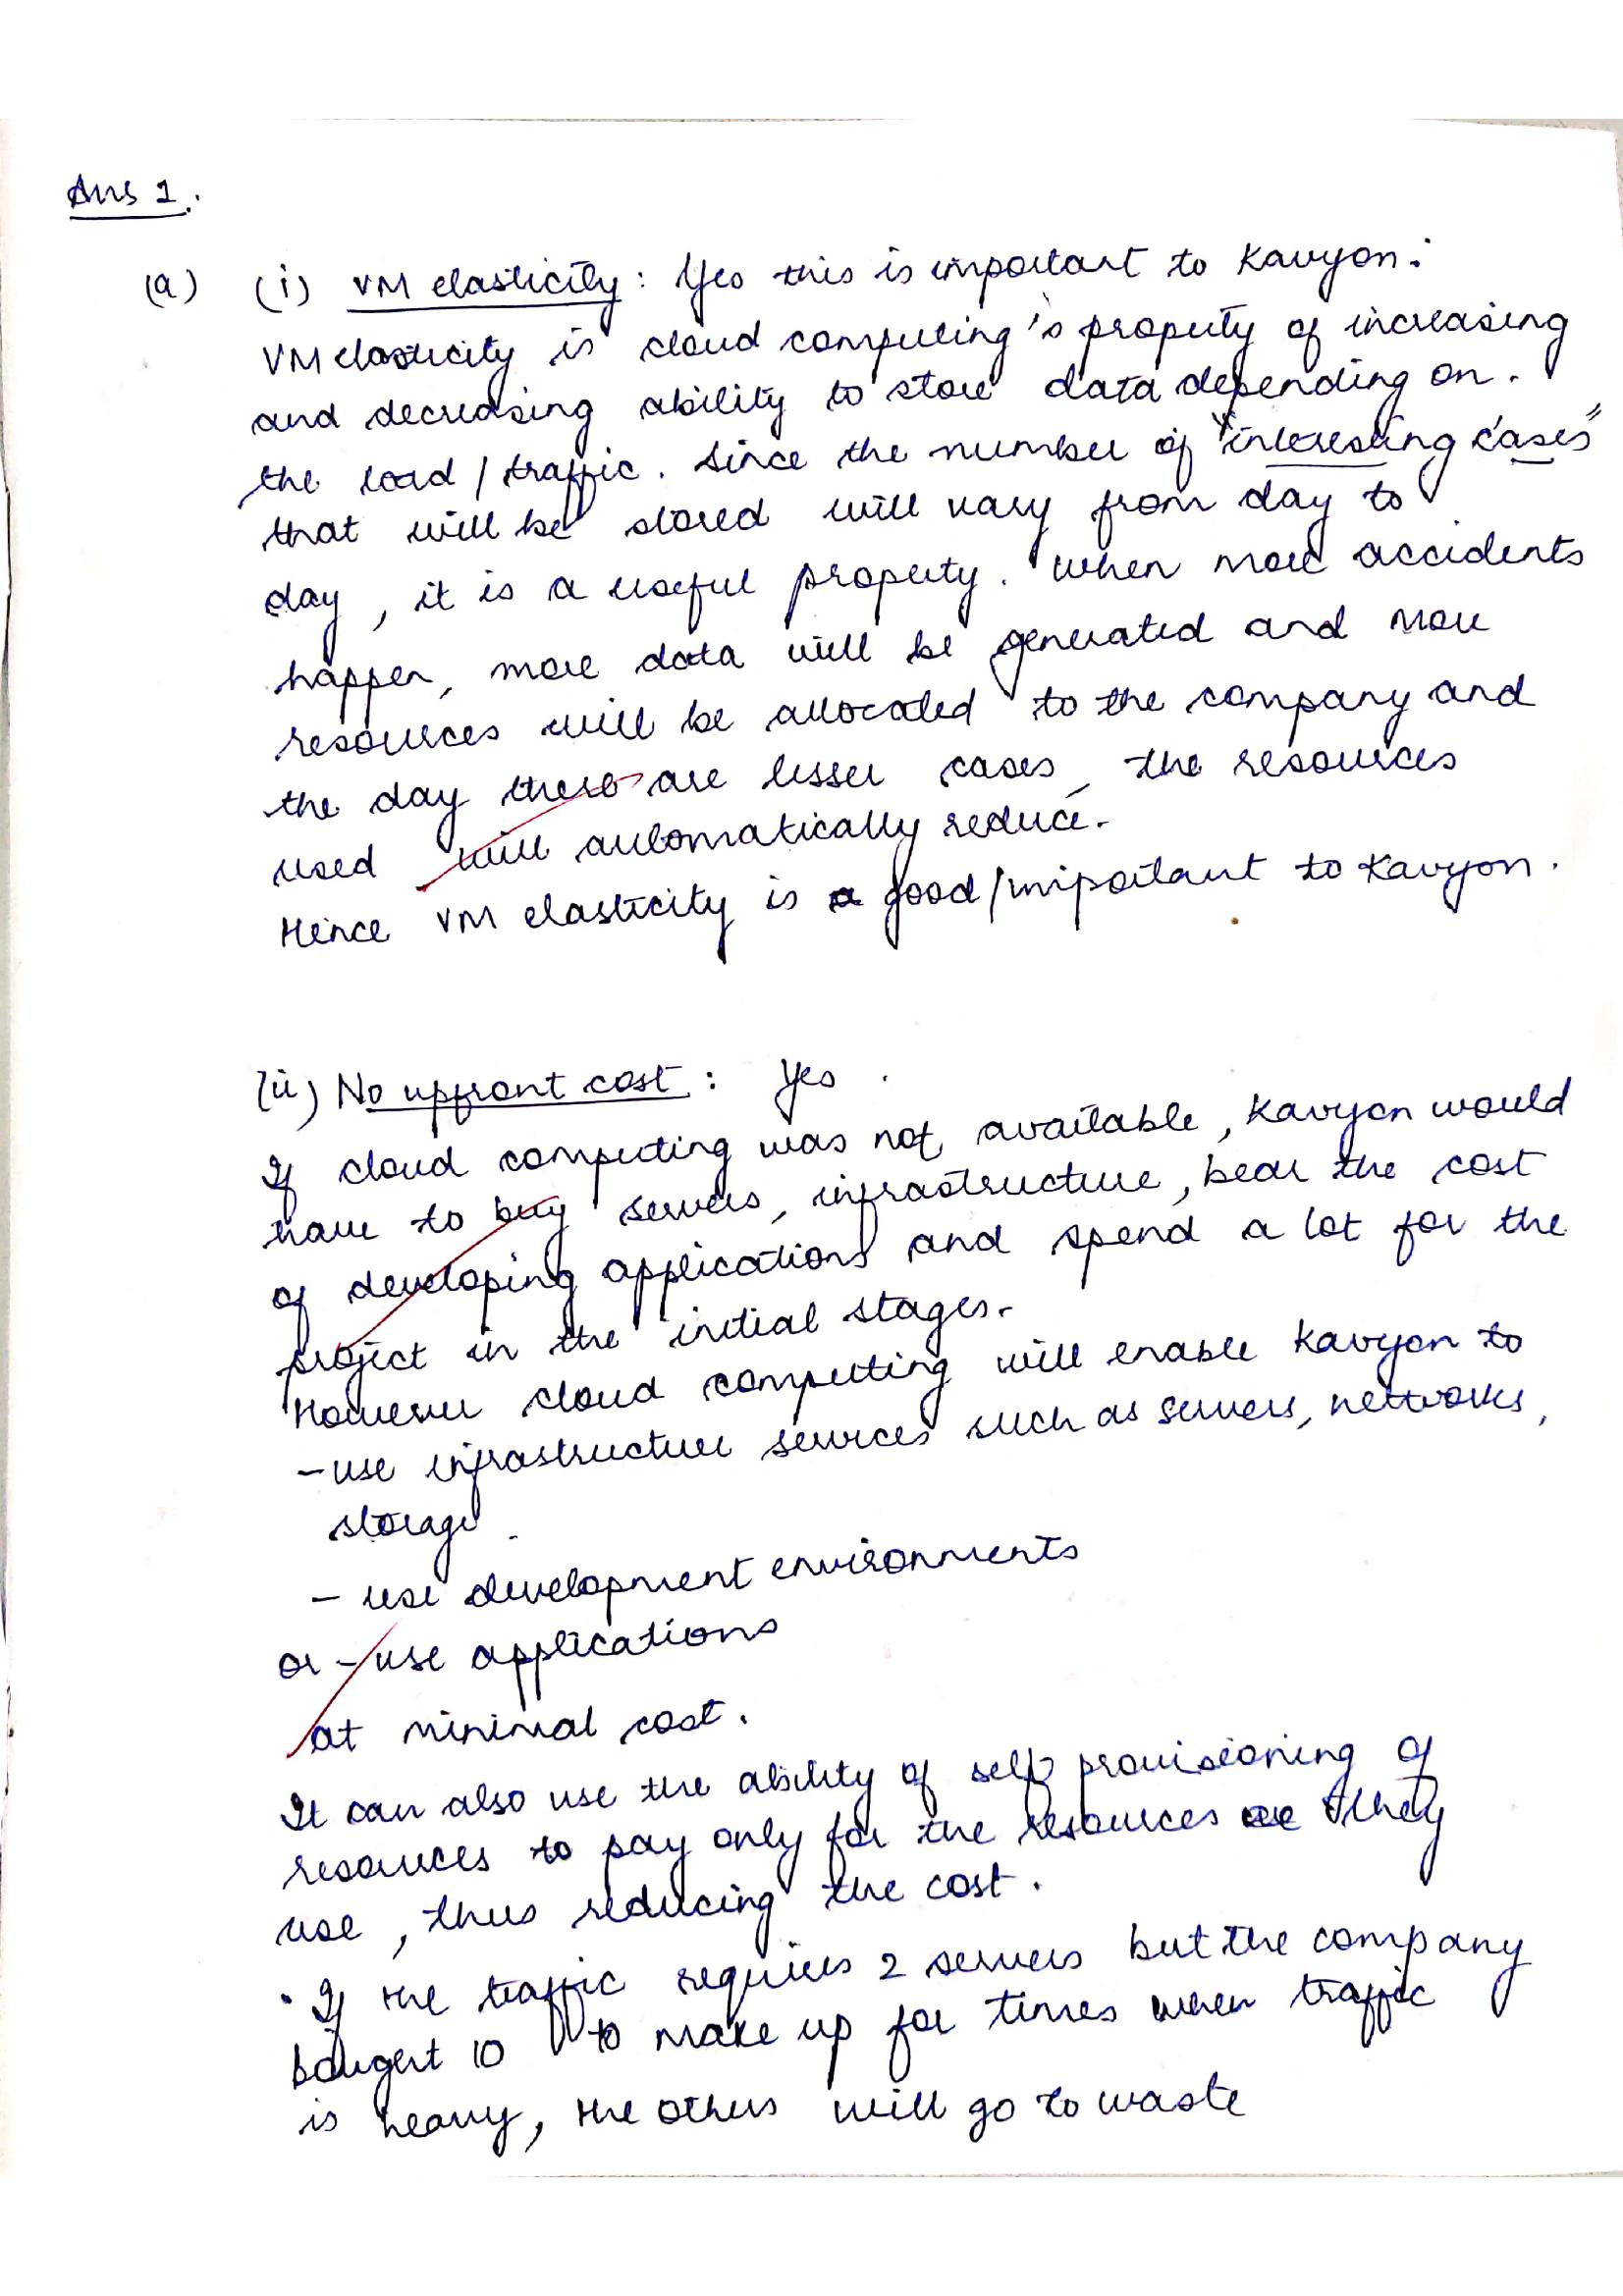 Ans 1.
(a) (i) VM elasticity: Yes this is important to Kavyon.
VM elasticity is cloud computing's property of increasing
and decreasing ability to store data depending on.
the load / traffic. Since the number of "interesting cases"
that will be stored will vary from day to
day, it is a useful property. When more accidents
happen, more data will be generated and more
resources will be allocated to the company and
the day there are lesser cases, the resources
used will automatically reduce.
Hence VM elasticity is good/important to Kavyon.
(ii) No upfront cost: Yes.
If cloud computing was not available, Kavyon would
have to buy servers, infrastructure, bear the cost
of developing applications and spend a lot for the
project in the initial stages.
However cloud computing will enable Kavyon to
- use infrastructure services such as servers, networks,
storage
- use development environments
or - use applications
at minimal cost.
It can also use the ability of self provisioning of
resources to pay only for the resources they
use, thus reducing the cost.
• If the traffic requires 2 servers but the company
bought 10 to make up for times when traffic
is heavy, the others will go to waste